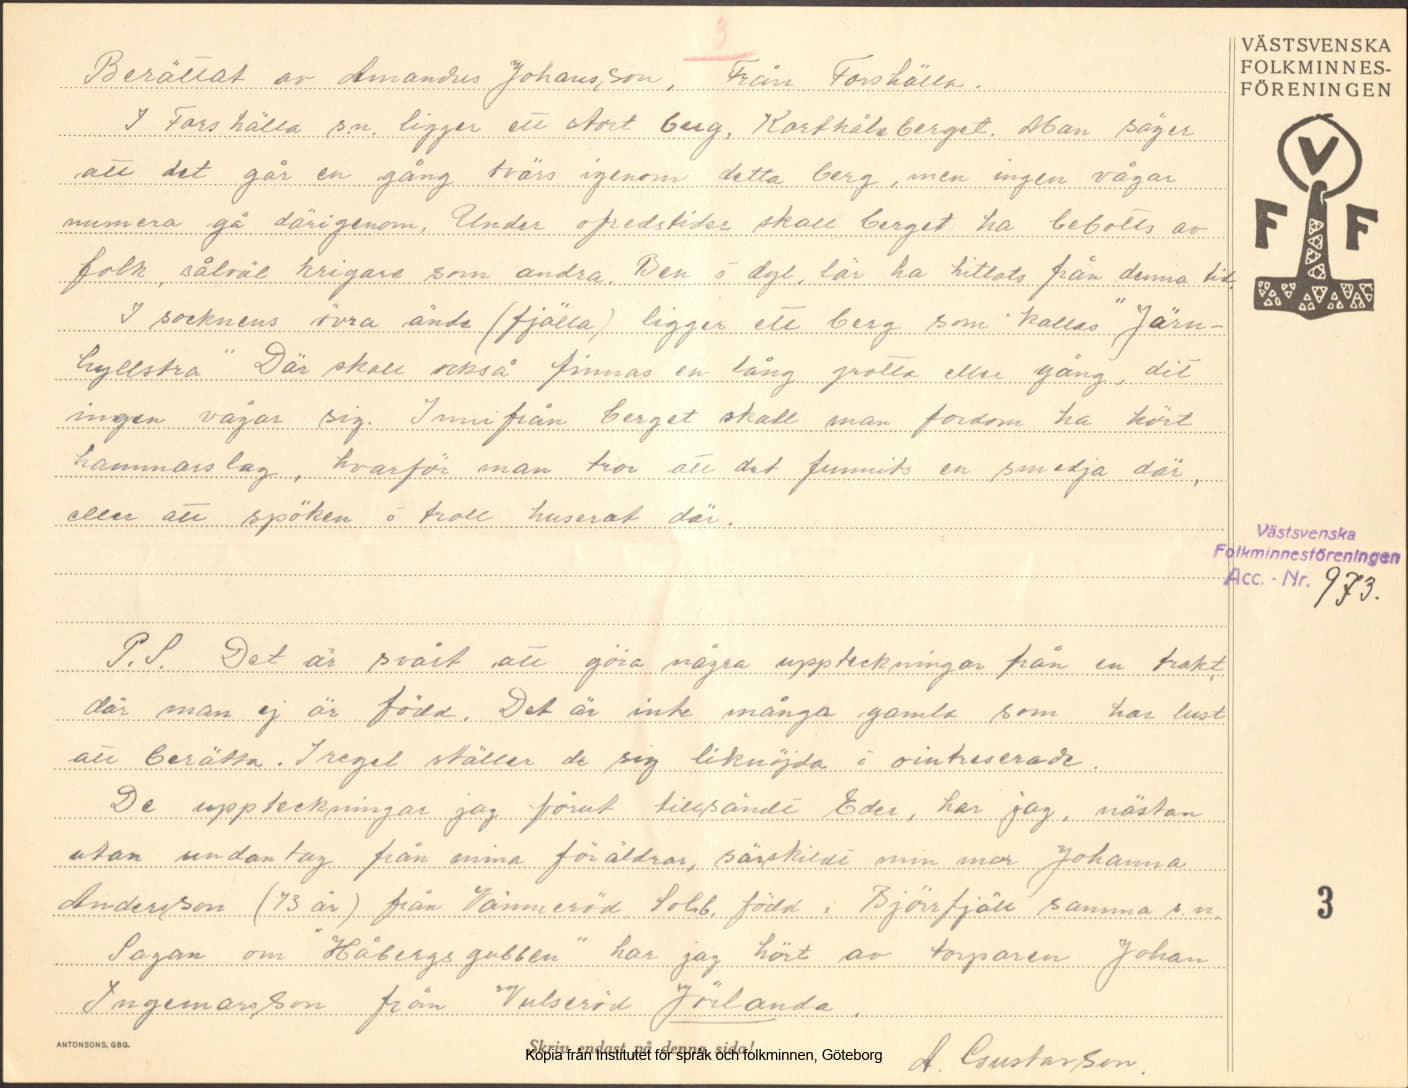 3
VÄSTSVENSKA
FOLKMINNES-
FÖRENINGEN
V
F F
Berättat av Amandus Johansson, Från Forshälla.
I Forshälla sn. ligger ett stort berg, Korphåleberget. Man säger
att det går en gång tvärs igenom detta berg, men ingen vågar
numera gå därigenom. Under ofredstider skall berget ha bebotts av
folk, såväl krigare som andra. Ben o dyl. lär ha hittats från denna tid.
I socknens övra ände (fjälla) ligger ett berg som kallas "Järn-
hyllstra" Där skall också finnas en lång grotta eller gång, dit
ingen vågar sig. Innifrån berget skall man fordom ha hört
hammarslag, hvarför man tror att det funnits en smedja där,
eller att spöken o troll huserat där.
Västsvenska
Folkminnesföreningen
Acc. - Nr. 973.
P.S. Det är svårt att göra några uppteckningar från en trakt,
där man ej är född. Det är inte många gamla som har lust
att berätta. I regel ställer de sig liknöjda o ointreserade.
De uppteckningar jag förut tillsändt Eder, har jag, nästan
utan undantag från mina föräldrar, särskildt min mor Johanna
Andersson (73 år) från Vänneröd Solb. född i Björrfjäll samma s.n.
Sagan om "Håbergsgubben" har jag hört av torparen Johan
Ingemarsson från Vulseröd Jörlanda.
3
A. Gustavsson.
ANTONSONS, GBG.
Skriv endast på denna sida!
Kopia från Institutet för språk och folkminnen, Göteborg